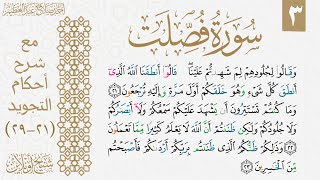 ٣
سُورَةُ فُصِّلَتْ
مع
شرح
أحكام
التجويد
(٢١-٢٩)
وَقَالُوا۟ لِجُلُودِهِمْ لِمَ شَهِدتُّمْ عَلَيْنَا ۖ قَالُوٓا۟ أَنطَقَنَا ٱللَّهُ ٱلَّذِىٓ
أَنطَقَ كُلَّ شَىْءٍ وَهُوَ خَلَقَكُمْ أَوَّلَ مَرَّةٍ وَإِلَيْهِ تُرْجَعُونَ ٢١
وَمَا كُنتُمْ تَسْتَتِرُونَ أَن يَشْهَدَ عَلَيْكُمْ سَمْعُكُمْ وَلَآ أَبْصَـٰرُكُمْ
وَلَا جُلُودُكُمْ وَلَـٰكِن ظَنَنتُمْ أَنَّ ٱللَّهَ لَا يَعْلَمُ كَثِيرًا مِّمَّا تَعْمَلُونَ
٢٢ وَذَٰلِكُمْ ظَنُّكُمُ ٱلَّذِى ظَنَنتُم بِرَبِّكُمْ أَرْدَىٰكُمْ فَأَصْبَحْتُم
مِّنَ ٱلْخَـٰسِرِينَ ٢٣